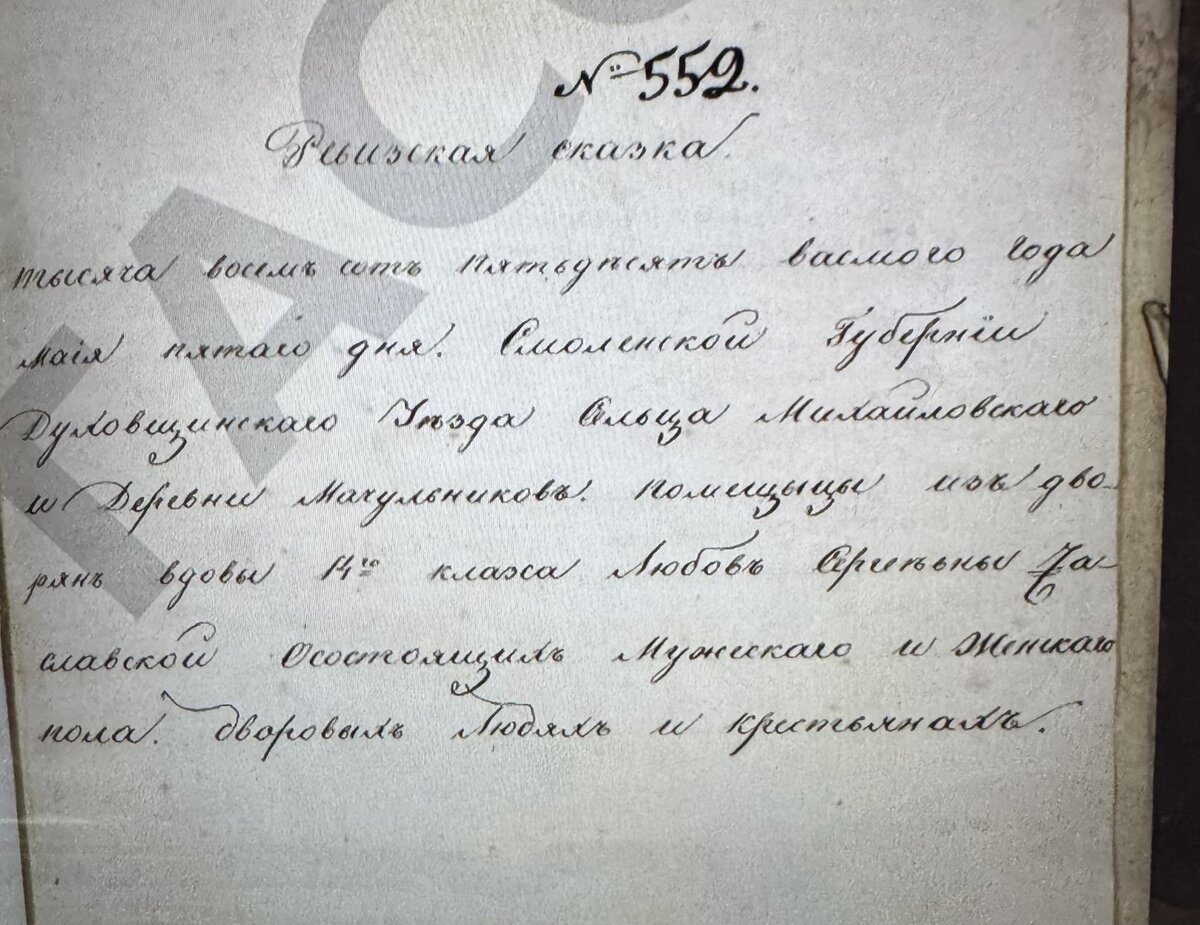 № 552.
Ревизская сказка.
тысяча восемъ сотъ пятьдесятъ васмого года
маія пятаго дня. Смоленской Губерніи
Духовщинскаго Уѣзда Сельца Михайловскаго
и Деревни Мачульниковъ. помещицы изъ дво-
рянъ вдовы 14го класа Любовъ Сергѣевны
славской Осостоящихъ Мужескаго и Женскаго
пола. дворовыхъ Людяхъ и крестьянахъ.
ГАС